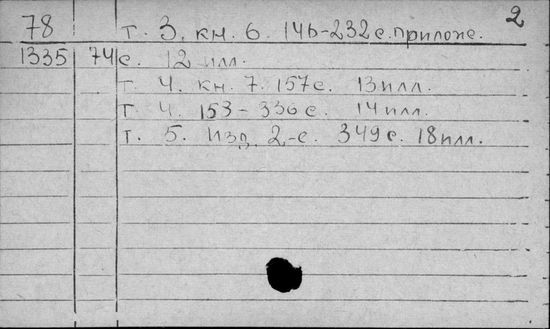 2
78 т. 3. кн. 6. 146-232 с. прилож.
1335 74 с. 12 илл.
т. 4. кн. 7. 157 с. 13 илл.
т. 4. 153-330 с. 14 илл.
т. 5. Изд. 2-е. 349 с. 18 илл.